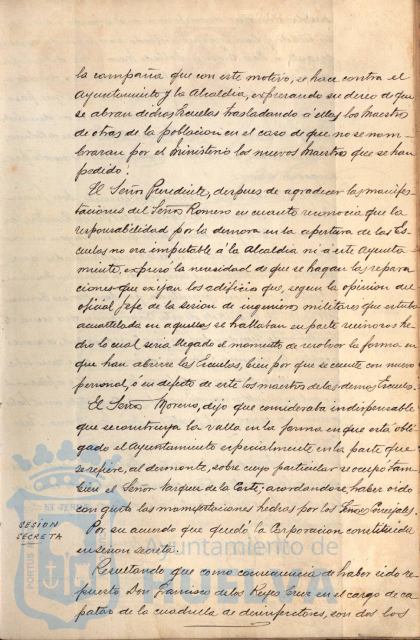 la campaña que con este motivo, se hace contra el
Ayuntamiento y la Alcaldia, expresando su deseo de que
se abran dichas Escuelas trasladando á ellas los Maestros
de otras de la poblacion en el caso de que no se nom-
braran por el Ministerio los nuevos Maestros que se han
pedido.
El Señor Presidente, despues de agradecer las manifes-
taciones del Señor Romero en cuanto reconocia que la
responsabilidad por la demora en la apertura de las Es-
cuelas no era imputable á la Alcaldia ni á este Ayunta-
miento, expresó la necesidad de que se hagan las repara-
ciones que exijan los edificios que, segun la opinion del
oficial Jefe de la sesion de ingenieros militares que estuvo
acuartelada en aquellas se hallaban en parte ruinosos he-
cho lo cual seria llegado el momento de resolver la forma en
que han abrirse las Escuelas, bien por que se cuente con nuevo
personal, ó en defecto de este los maestros de las demas Escuelas.
El Señor Moreno, dijo que consideraba indispensable
que se construya la valla en la forma en que está obli-
gado el Ayuntamiento especialmente en la parte que
se refiere, al desmonte, sobre cuyo particular se ocupó tam-
bien el Señor Vazquez de la Corte; acordandose, haber oido
con gusto las manifestaciones hechas por los Señores Concejales.
SESION
SECRETA
Por su acuerdo que quedó la Corporacion constituida
en sesion secreta.
Resultando que como consecuencia de haber sido re-
puesto Don Francisco de los Reyes Cruz en el cargo de ca-
pataz de la cuadrilla de desinfectores, son dos los
Ayuntamiento de
HUELVA
PORTUS